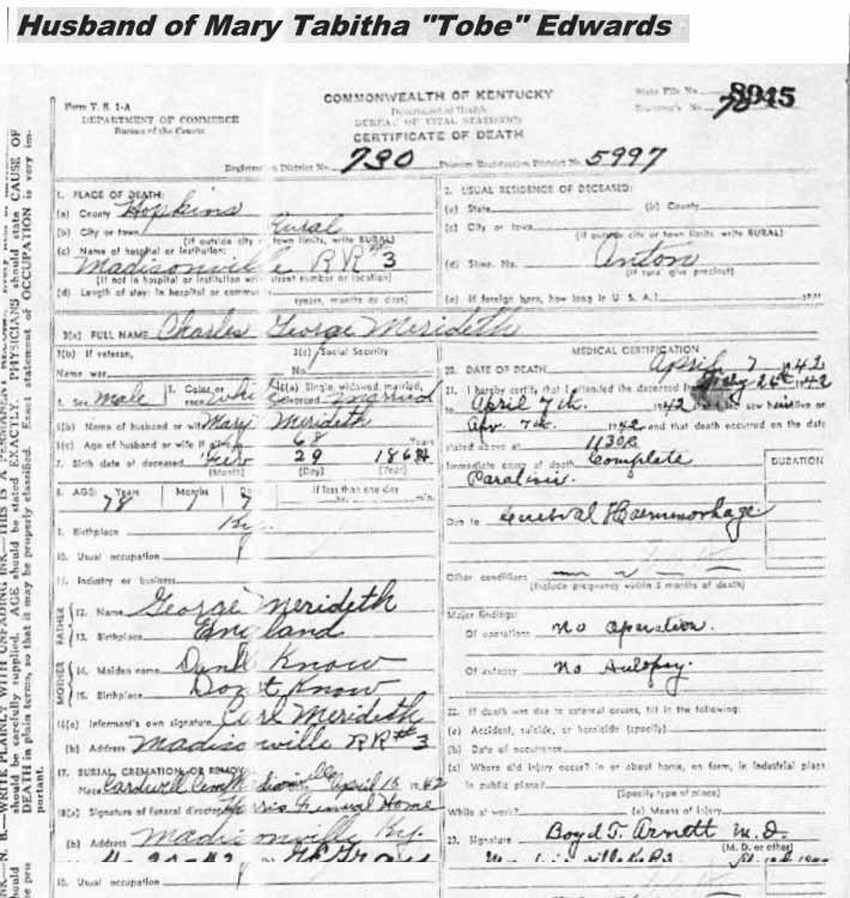 Husband of Mary Tabitha "Tobe" Edwards
Form V. S. 1-A
DEPARTMENT OF COMMERCE
Bureau of the Census
COMMONWEALTH OF KENTUCKY
Department of Health
BUREAU OF VITAL STATISTICS
CERTIFICATE OF DEATH
State File No. 8945
Registrar's No. 78
Registration District No. 730 Primary Registration District No. 5997
1. PLACE OF DEATH:
(a) County Hopkins
(b) City or town Rural
(If outside city or town limits, write RURAL)
(c) Name of hospital or institution:
Madisonville RR#3
(If not in hospital or institution write street number or location)
(d) Length of stay: In hospital or
(years, months or days)
2. USUAL RESIDENCE OF DECEASED:
(a) State (b) County
(c) City or town
(If outside city or town limits write RURAL)
(d) Street No. Anton
(If rural give precinct)
(e) If foreign born, how long in U. S. A.? years
3(a) FULL NAME Charles George Merideth
3(b) If veteran, 3(c) Social Security
Name war No.
4. Sex male 5. Color or race White 6(a) Single, widowed, married, divorced Married
6(b) Name of husband or wife Mary Merideth
6(c) Age of husband or wife if alive 68 Years
7. Birth date of deceased 29
(Month) (Day) (Year)
8. AGE: Years Months Days If less than one day
78 7 hr. min.
9. Birthplace Ky.
10. Usual occupation
11. Industry or business
FATHER
12. Name George Merideth
13. Birthplace England
MOTHER
14. Maiden name Dont Know
15. Birthplace Dont Know
16(a) Informant's own signature Carl Merideth
(b) Address Madisonville RR#3
17. BURIAL, CREMATION, OR REMOVAL
Place Cardwell Cem April 1942
18(a) Signature of funeral director Harris Funeral Home
(b) Address Madisonville Ky.
MEDICAL CERTIFICATION
20. DATE OF DEATH April 7 1942
21. I hereby certify, that I attended the deceased 1942
to April 7th. 1942 that I last saw him alive on
Apr. 7th. 1942 and that death occurred on the date
stated above at 1130
Immediate cause of death Complete
DURATION
Due to Cerebral Haemmorhage
Other conditions
(Include pregnancy within 3 months of death)
Major findings:
Of operations no operation.
Of autopsy No Autopsy.
22. If death was due to external causes, fill in the following:
(a) Accident, suicide, or homicide (specify)
(b) Date of occurrence
(c) Where did injury occur? in or about home, on farm, in industrial place
in public place?
(Specify type of place)
While at work? (e) Means of injury
23. Signature Boyd T. Arnett M. D.
(M. D. or other)
10. Usual occupation
N. B.—WRITE PLAINLY WITH UNFADING INK—THIS IS A PERMANENT RECORD.
should be carefully supplied. AGE should be stated EXACTLY. PHYSICIANS should state CAUSE OF
DEATH in plain terms, so that it may be properly classified. Exact statement of OCCUPATION is very im-
portant.